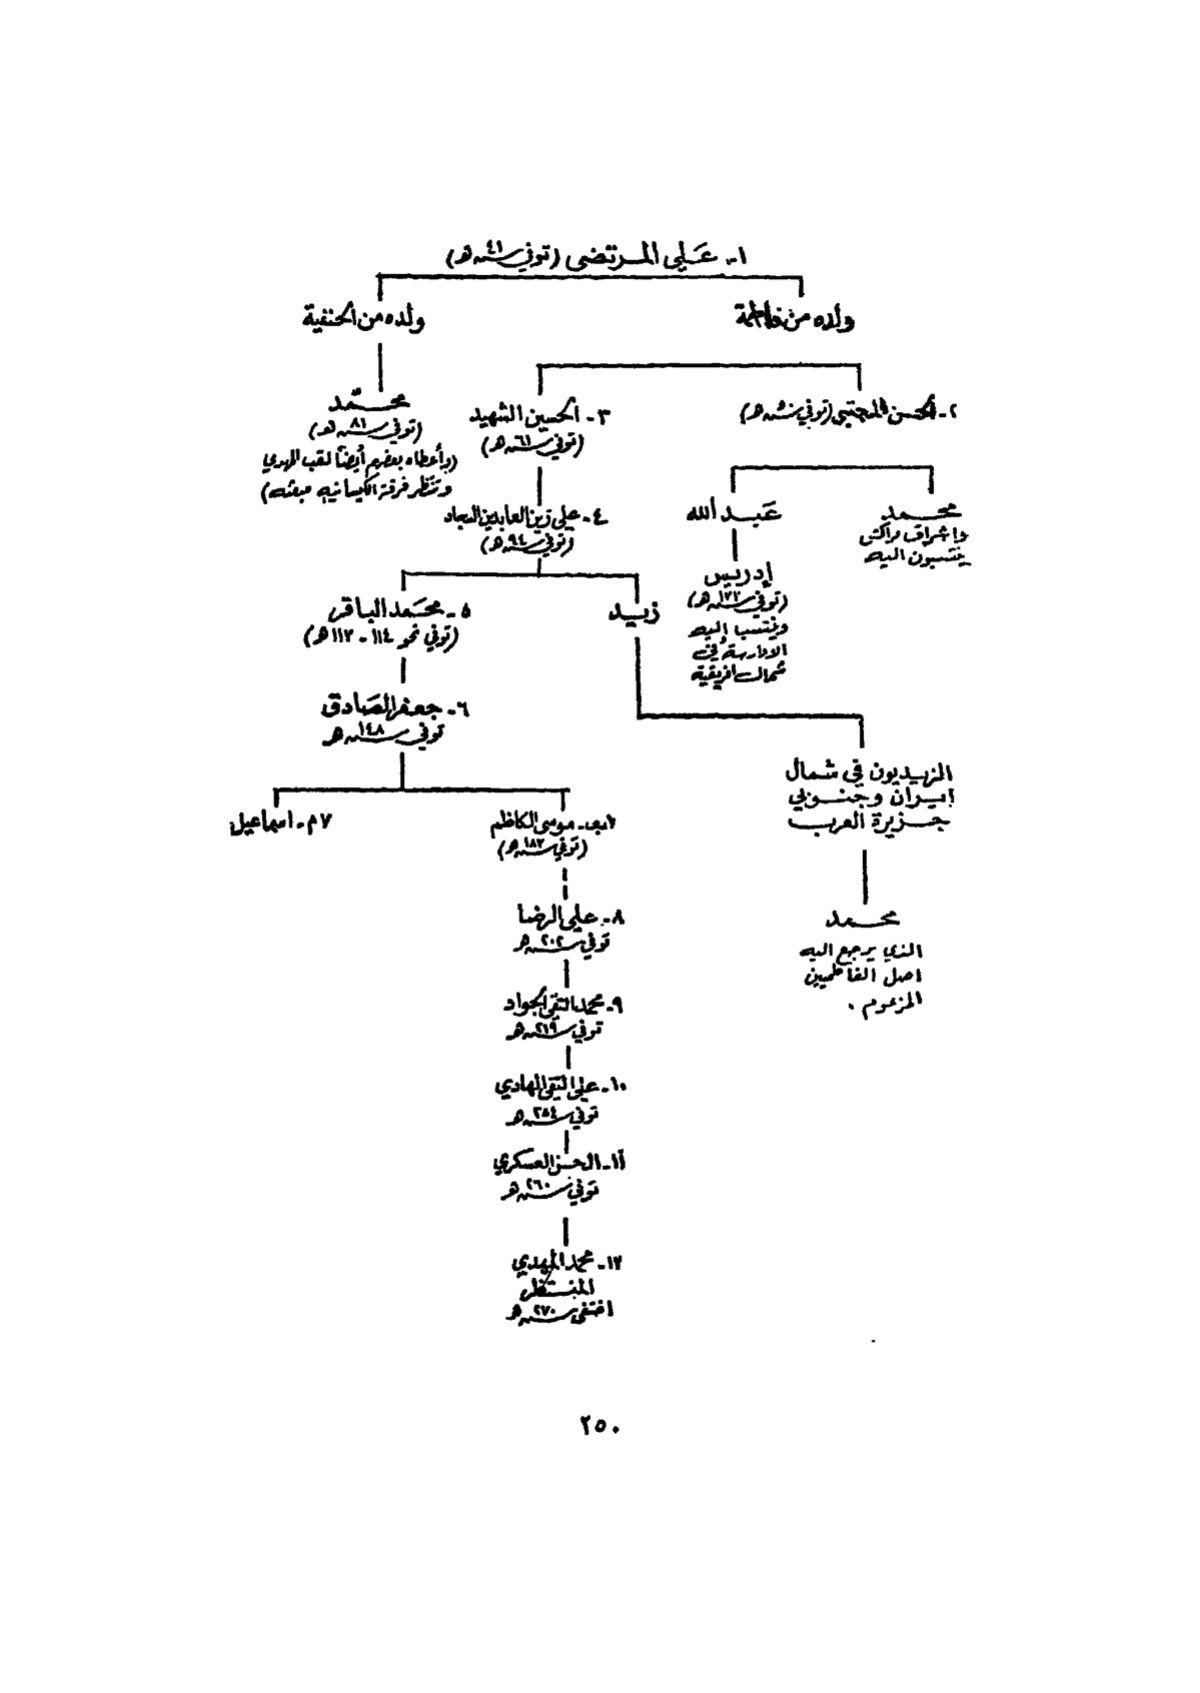 ١- عَلي المرتضى (توفي سنة ٤١ هـ)
ولده من فاطمة
ولده من الحنفية
٢- الحسن المجتبى (توفي سنة ٥٠ هـ)
٣- الحسين الشهيد
(توفي سنة ٦١ هـ)
محمّد
(توفي سنة ٨١ هـ)
(وأعطاه بعضهم أيضاً لقب المهدي
وتنتظر فرقة الكيسانيه مبعثه)
محمد
واشراف مراكش
ينتسبون اليه
عَبد الله
إدريس
(توفي سنة ١٧٢ هـ)
وينتسب اليه
الادارسة في
شمال افريقية
٤- علي زين العابدين السجاد
(توفي سنة ٩٤ هـ)
زيد
٥- محمَد الباقر
(توفي نحو ١١٤ - ١١٧ هـ)
٦- جعفر الصَادق
توفي سنة ١٤٨ هـ
الزيديون في شمال
ايران وجنوبي
جزيرة العرب
محمد
الذي يرجع اليه
اصل الفاطميين
المزعوم .
موسى الكاظم
(توفي سنة ١٨٣ هـ)
٧م- اسماعيل
٨- علي الرضا
توفي سنة ٢٠٢ هـ
٩- محمد التقي الجواد
توفي سنة ٢١٩ هـ
١٠- علي النقي الهادي
توفي سنة ٢٥٤ هـ
١١- الحسن العسكري
توفي سنة ٢٦٠ هـ
١٢- محمد المهدي
المنتظر
اختفى سنة ٢٧٠ هـ
٢٥٠